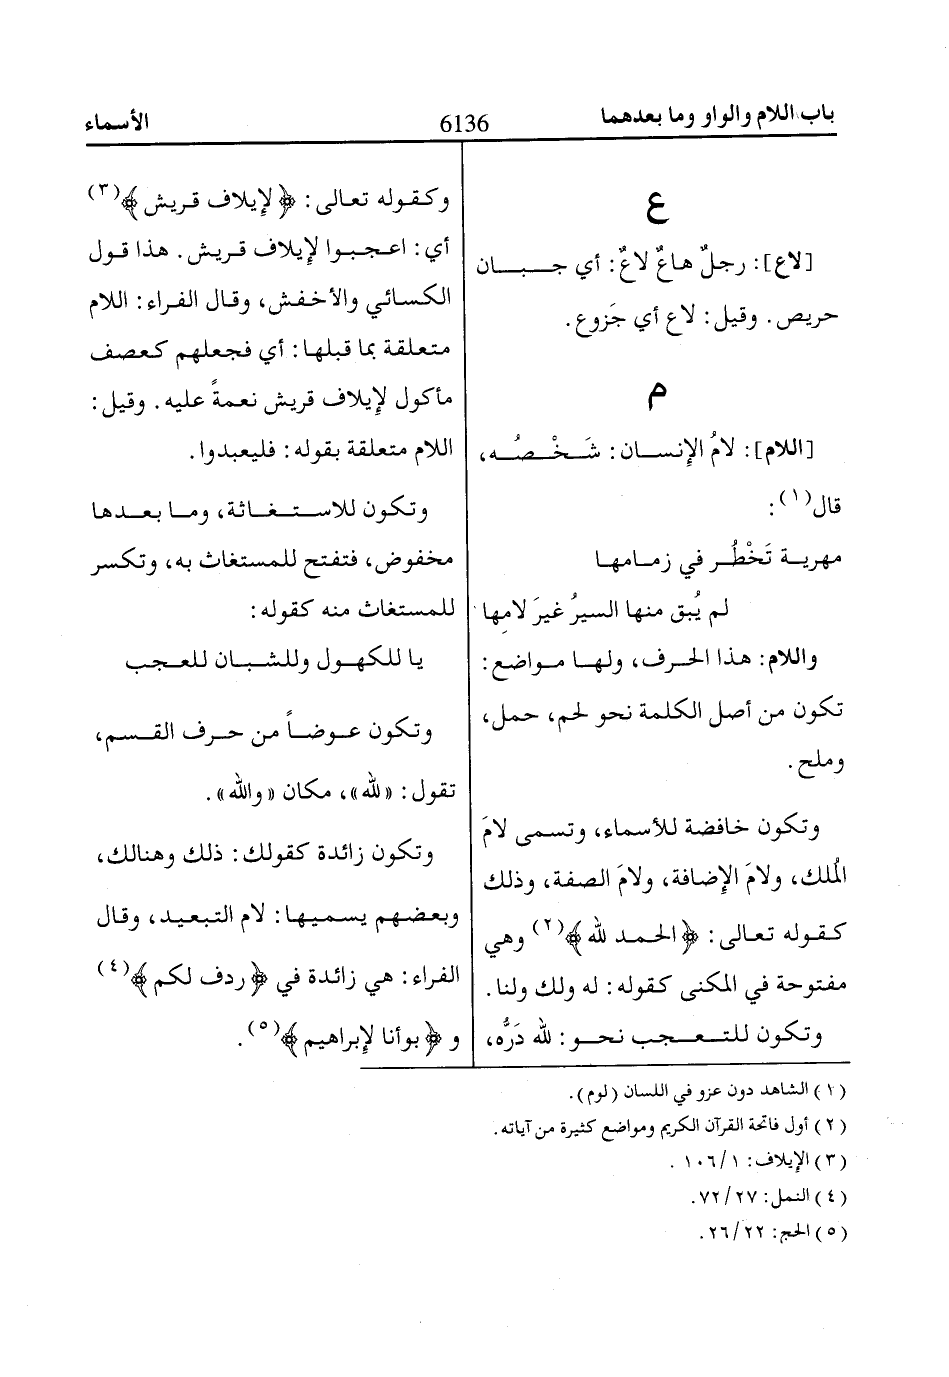 باب اللام والواو وما بعدهما
6136
الأسماء
ع
[لاع]: رجلٌ هاعٌ لاعٌ: أي جبان
حريص. وقيل: لاع أي جَزوع.
م
[اللام]: لامُ الإنسان: شَخْصُه،
قال(١):
مهرية تَخْطُر في زمامها
لم يُبق منها السيرُ غيرَ لامِها
واللام: هذا الحرف، ولها مواضع:
تكون من أصل الكلمة نحو لحم، حمل،
وملح.
وتكون خافضة للأسماء، وتسمى لامَ
المُلك، ولامَ الإضافة، ولامَ الصفة، وذلك
كقوله تعالى: ﴿الحمد لله﴾(٢) وهي
مفتوحة في المكنى كقوله: له ولك ولنا.
وتكون للتعجب نحو: لله دَرُّه،
وكقوله تعالى: ﴿لإيلاف قريش﴾(٣)
أي: اعجبوا لإيلاف قريش. هذا قول
الكسائي والأخفش، وقال الفراء: اللام
متعلقة بما قبلها: أي فجعلهم كعصف
مأكول لإيلاف قريش نعمةً عليه. وقيل:
اللام متعلقة بقوله: فليعبدوا.
وتكون للاستغاثة، وما بعدها
مخفوض، فتفتح للمستغاث به، وتكسر
للمستغاث منه كقوله:
يا للكهول وللشبان للعجب
وتكون عوضاً من حرف القسم،
تقول: «لله»، مكان «والله».
وتكون زائدة كقولك: ذلك وهنالك،
وبعضهم يسميها: لام التبعيد، وقال
الفراء: هي زائدة في ﴿ردف لكم﴾(٤)
و﴿بوأنا لإبراهيم﴾(٥).
(١) الشاهد دون عزو في اللسان (لوم).
(٢) أول فاتحة القرآن الكريم ومواضع كثيرة من آياته.
(٣) الإيلاف: ١٠٦/١ .
(٤) النمل: ٧٢/٢٧.
(٥) الحج: ٢٦/٢٢.